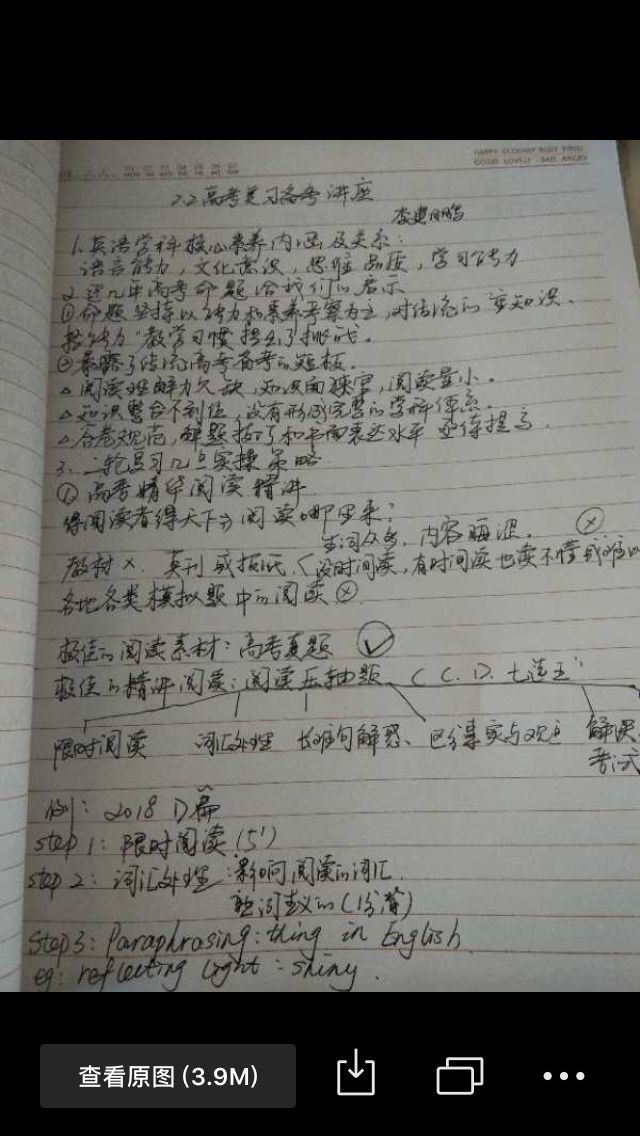 HAPPY GLOOMY BUSY TIRED
GOOD LOVELY SAD ANGRY
2.2高考复习备考讲座
李建鹏
1.英语学科核心素养内涵及关系:
语言能力,文化意识,思维品质,学习能力
2.近几年高考命题给我们的启示
①命题坚持以能力和素养考察为主,对传统的"重知识、
轻能力"教学习惯提出了挑战。
②暴露了传统高考备考的短板。
△阅读理解力欠缺,知识面狭窄,阅读量小。
△知识整合不到位,没有形成完整的学科体系。
△答卷规范,解题技巧和书面表达水平亟待提高。
3、二轮复习几点实操策略
①高考精华阅读精讲
得阅读者得天下⇒阅读哪里来?
生词众多,内容晦涩。ⓧ
教材×. 英刊或报纸〈没时间读,有时间读也读不懂或难以
各地各类模拟题中的阅读ⓧ
最佳的阅读素材:高考真题 ✓
最佳的精讲阅读:阅读压轴题 (C.D.七选五)
限时阅读 词汇处理 长难句解惑、区分事实与观点 解误
考试
例:2018 D篇
step 1:限时阅读(5')
step 2:词汇处理:影响阅读的词汇
Step3: Paraphrasing: thing in English
eg: reflecting light = shiny.
查看原图 (3.9M)